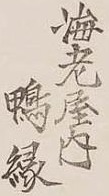 海老屋内
鴨緑